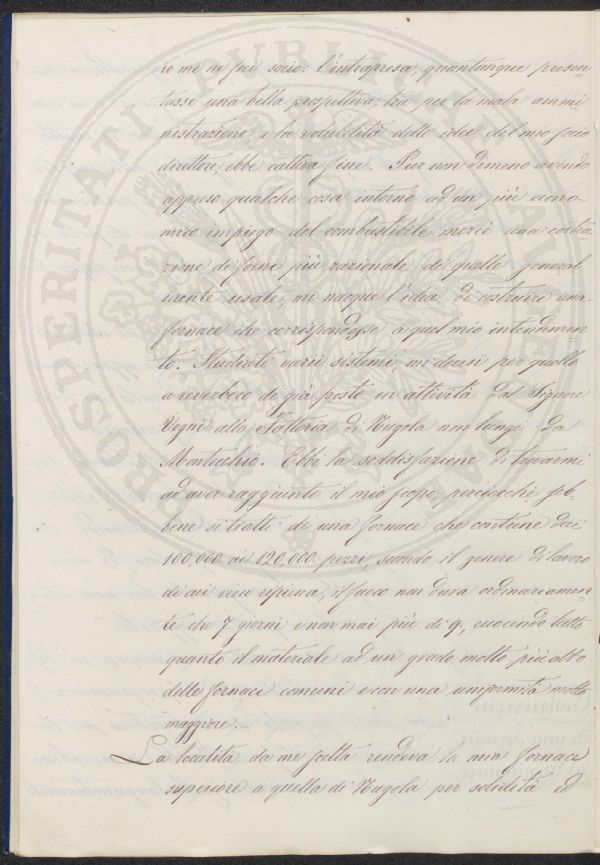 ro me ne feci socio: l'intrapresa, quantunque presen-
tasse una bella prospettiva, tra per la mala ammi-
nistrazione, e la volubilità delle idee del mio socio
direttore, ebbe cattiva fine. Pur non dimeno avendo
appreso qualche cosa intorno ad un più econo-
mico impiego del combustibile mercè una costru-
zione di forni più razionale di quelle general
mente usate, mi nacque l'idea di costruire una
fornace che corrispondesse a quel mio intendimen-
to. Studiati varii sistemi, mi decisi per quello
a reverbero di già posto in attività dal Signore
Vegni alla Fattoria di Nugola non lungi da
Montecchio. Ebbi la soddisfazione di trovarmi
ad aver raggiunto il mio scopo, perciocchè seb-
bene si tratti di una fornace che contiene dai
100,000 ai 120,000 pezzi, secondo il genere di lavoro
di cui vien ripiena, il fuoco non dura ordinariamen-
te che 7 giorni e non mai più di 9, cuocendo tutto
quanto il materiale ad un grado molto più alto
delle fornaci comuni e con una uniformità molto
maggiore.
La località da me scelta rendeva la mia fornace
superiore a quella di Nugola per solidità ed
PROSPERITATI PUBLICAE AUGENDAE